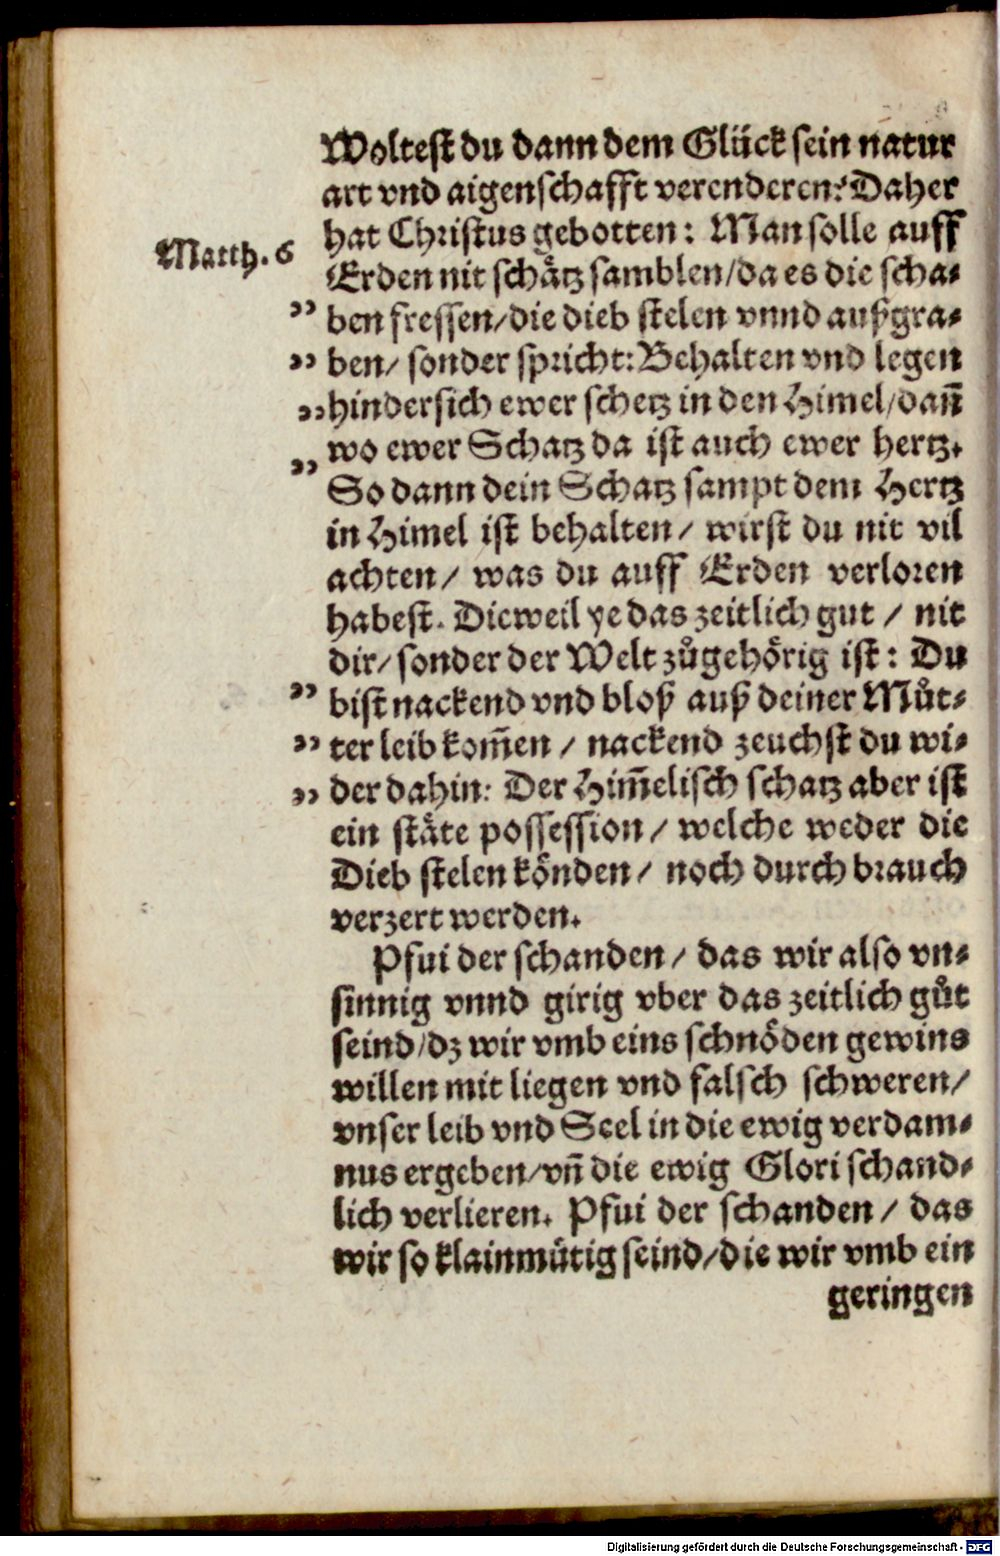 Woltest du dann dem Glück sein natur
art vnd aigenschafft verenderen? Daher
hat Christus gebotten: Man solle auff
Matth. 6
Erden nit schätz samblen/da es die scha-
„ ben fressen/die dieb stelen vnnd außgra-
„ ben/ sonder spricht: Behalten vnd legen
„ hindersich ewer schetz in den Himel/dañ
„ wo ewer Schatz da ist auch ewer hertz.
So dann dein Schatz sampt dem Hertz
in Himel ist behalten/ wirst du nit vil
achten/ was du auff Erden verloren
habest. Dieweil ye das zeitlich gut / nit
dir/ sonder der Welt zůgehörig ist: Du
„ bist nackend vnd bloß auß deiner Můt-
„ ter leib kom̃en / nackend zeuchst du wi-
„ der dahin: Der Him̃elisch schatz aber ist
ein stäte possession/ welche weder die
Dieb stelen könden/ noch durch brauch
verzert werden.
Pfui der schanden/ das wir also vn-
sinnig vnnd girig vber das zeitlich gůt
seind/dz wir vmb eins schnöden gewins
willen mit liegen vnd falsch schweren/
vnser leib vnd Seel in die ewig verdam-
nus ergeben/vñ die ewig Glori schand-
lich verlieren. Pfui der schanden/ das
wir so klainmütig seind/die wir vmb ein
geringen
Digitalisierung gefördert durch die Deutsche Forschungsgemeinschaft - DFG